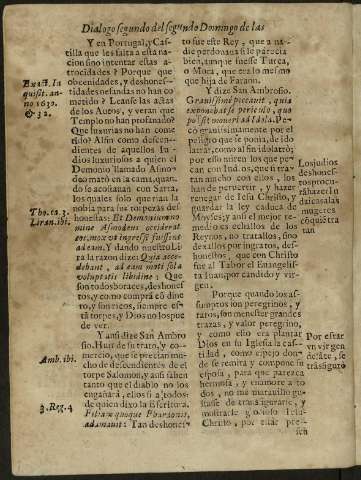 Dialogo segundo del segundo Domingo de las
Y en Portugal, y Cas-
tilla que les falta a esta na-
cion sino intentar estas a-
trocidades? Porque que
obcenidades, y deshones-
tidades nefandas no han co
metido? Leanse las actas
de los Autos, y veran que
Templo no han profanado?
Que luxurias no han come
tido? Assi como descen-
dientes de aquellos Iu-
dios luxuriosos a quien el
Demonio llamado Asmo-
deo matò en la cama, quan-
do se acostauan con Sarra,
los quales solo querian la
nobia para sus torpezas des
honestas: Et Demonium no
mine Asmodeus occiderat
eos, mox vt ingressi fuissent
ad eam. Y dando nuestro Li
ra la razon dize: Quia acce-
debant, ad eam moti sola
voluptatis libidine: Que
son todos boraces, deshones
tos, y como comprã cõ dine
ro, y sin tiento, siempre es-
tã torpes, y Dios no los pue
de ver.
Y ansi dize San Ambro
sio. Huir de su trato, y co-
mercio, que se precian mu-
cho de descendientes de el
torpe Salomon, y ansi saben
tanto que el diablo no los
engañarà, ellos si a todos:
de quien dixo la Escritura.
Filiam quoque Pharaonis,
adamauit: Tan deshones-
Exact. In
quisit. an-
no 1632.
Tho. ca. 3.
Liran. ibi.
Amb. ibi.
3. Reg. 4
to fue este Rey, que a na-
die perdonaua si le parecia
bien, aunque fuesse Turca,
o Mora, que era lo mesmo
que hija de Faraon.
Y dize San Ambrosio.
Grauissime peccauit, quia
ad Idola. Pe-
có grauissimamente por el
peligro que se ponia, de ido
latrar, como al fin idolatrò;
por esso miren los que pe-
can con Iudios, que si tra-
tan mucho con ellos, los
han de peruertir, y hazer
renegar de Iesu Christo, y
guardar la ley caduca de
Moyses; y ansi el mejor re-
medio es echallos de los
Reynos, no tratallos, sino
dexallos por ingratos, des-
honestos, que con Christo
fue al Tabor el Euangelis-
ta Iuan, por candido y vir-
gen.
Porque quando los as-
sumptos son peregrinos, y
raros, son menester grandes
trazas, y valor peregrino,
y como esto era plantar
Dios en su Iglesia la casti-
dad, como espejo don-
de se remira y compone su
esposa, para que parezca
hermosa, y enamore a to
dos, no me marauillo gu-
stasse de transfigurarse, y
mostrarse glorioso Iesu-
Christo, por estar pre-
sen
Los judios
deshones-
tos procu-
rã hazer Iu
daizar a las
mugeres
cõ quiẽ tra
tan
Por estar
vn virgen
delãte, se
trãsfigurò